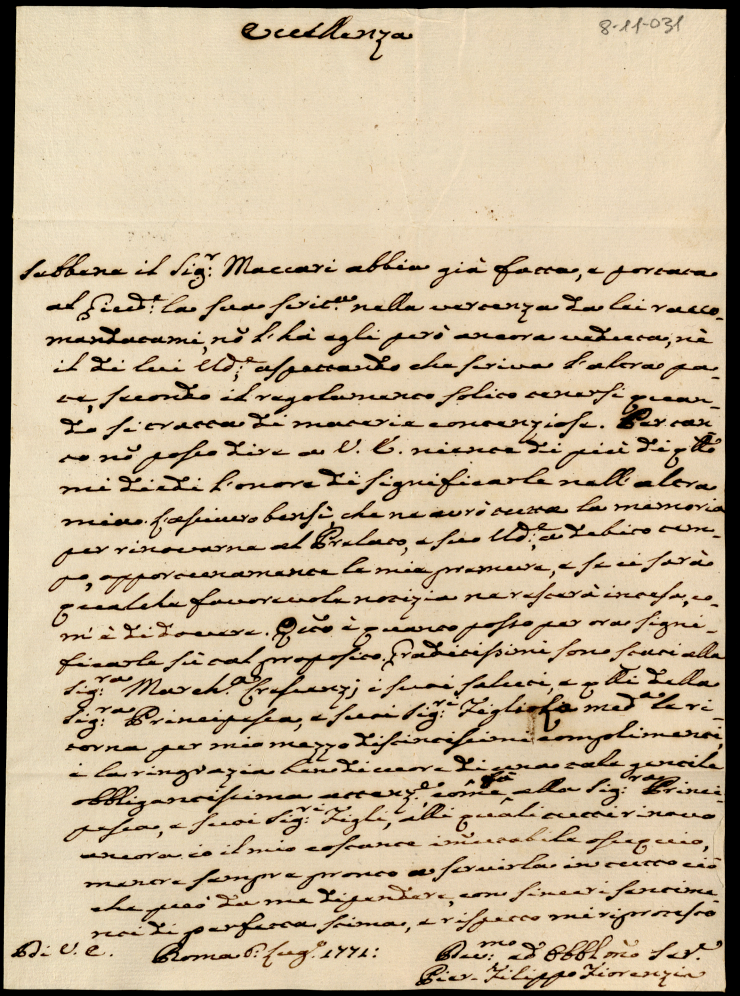 Eccellenza
8-11-031
Sebbene il Sig.r Maccari abbia già fatta, e portata
al Giud.e la sua scritt.a nella vertenza da lei racco-
mandatami, nõ l'hà egli però ancora veduta, nè
il di lui Ud.e aspettando che scriva l'altra par-
te, secondo il regolamento solito tenersi quan-
do si tratta di materie contenziose. Per tan-
to nõ posso dire a V. E. niente di più di qllo
mi diedi l'onore di significarle nell'altra
mia. L'assicuro bensì, che ne avrò tutta la memoria
per rinovarne al Prelato, e suo Ud.e a debito tem-
po, opportunamente le mie premure, e se ci sarà
qualche favorevole notizia ne resterà intesa, co-
m'è di dovere. Qto è quanto posso per ora signi-
ficarle sù tal proposito. Graditissimi sono stati alla
Sig.ra March.a Crescenzj i suoi saluti, e qlli della
Sig.ra Principessa, e suoi Sig.ri Figli med.a le ri-
torna per mio mezzo distintissimi complimenti,
e la ringrazia ben di cuore di una tale gentile
obbligantissima attenz.e, come alla Sig.ra Princi-
pessa, e suoi Sig.ri Figli, alli quali tutti rinuovo
ancora io il mio costante immutabile ossequio,
mentre sempre pronto a servirla in tutto ciò
che può da me dipendere, con sinceri sentime-
nti di perfetta stima, e rispetto mi riprotesto
Di V. E. Roma 6. Lug.o 1771: Dev.mo ed Obblmo Ser.
Pier-Filippo Fiorenzia